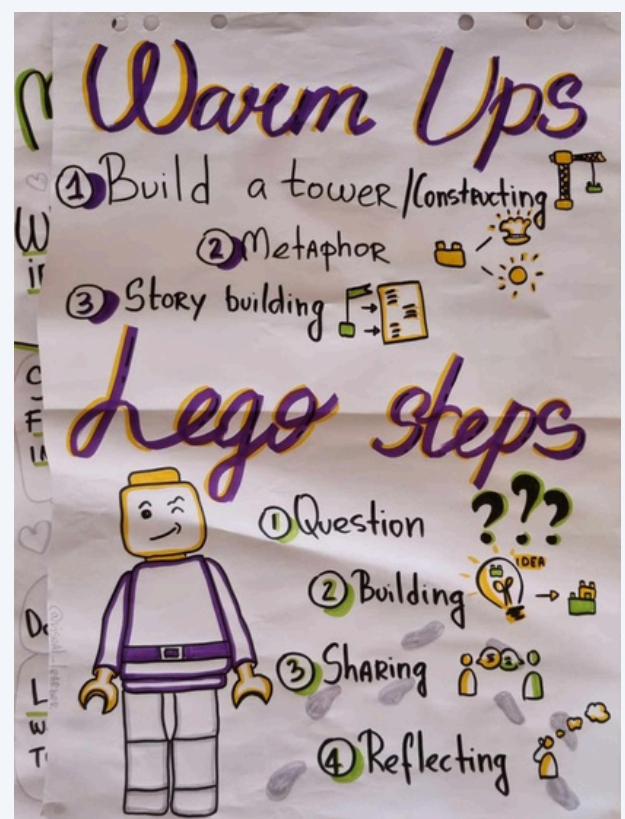 Warm Ups
1 Build a tower/Constructing
2 Metaphor
3 Story building
Lego steps
1 Question
???
2 Building
IDEA
3 Sharing
4 Reflecting